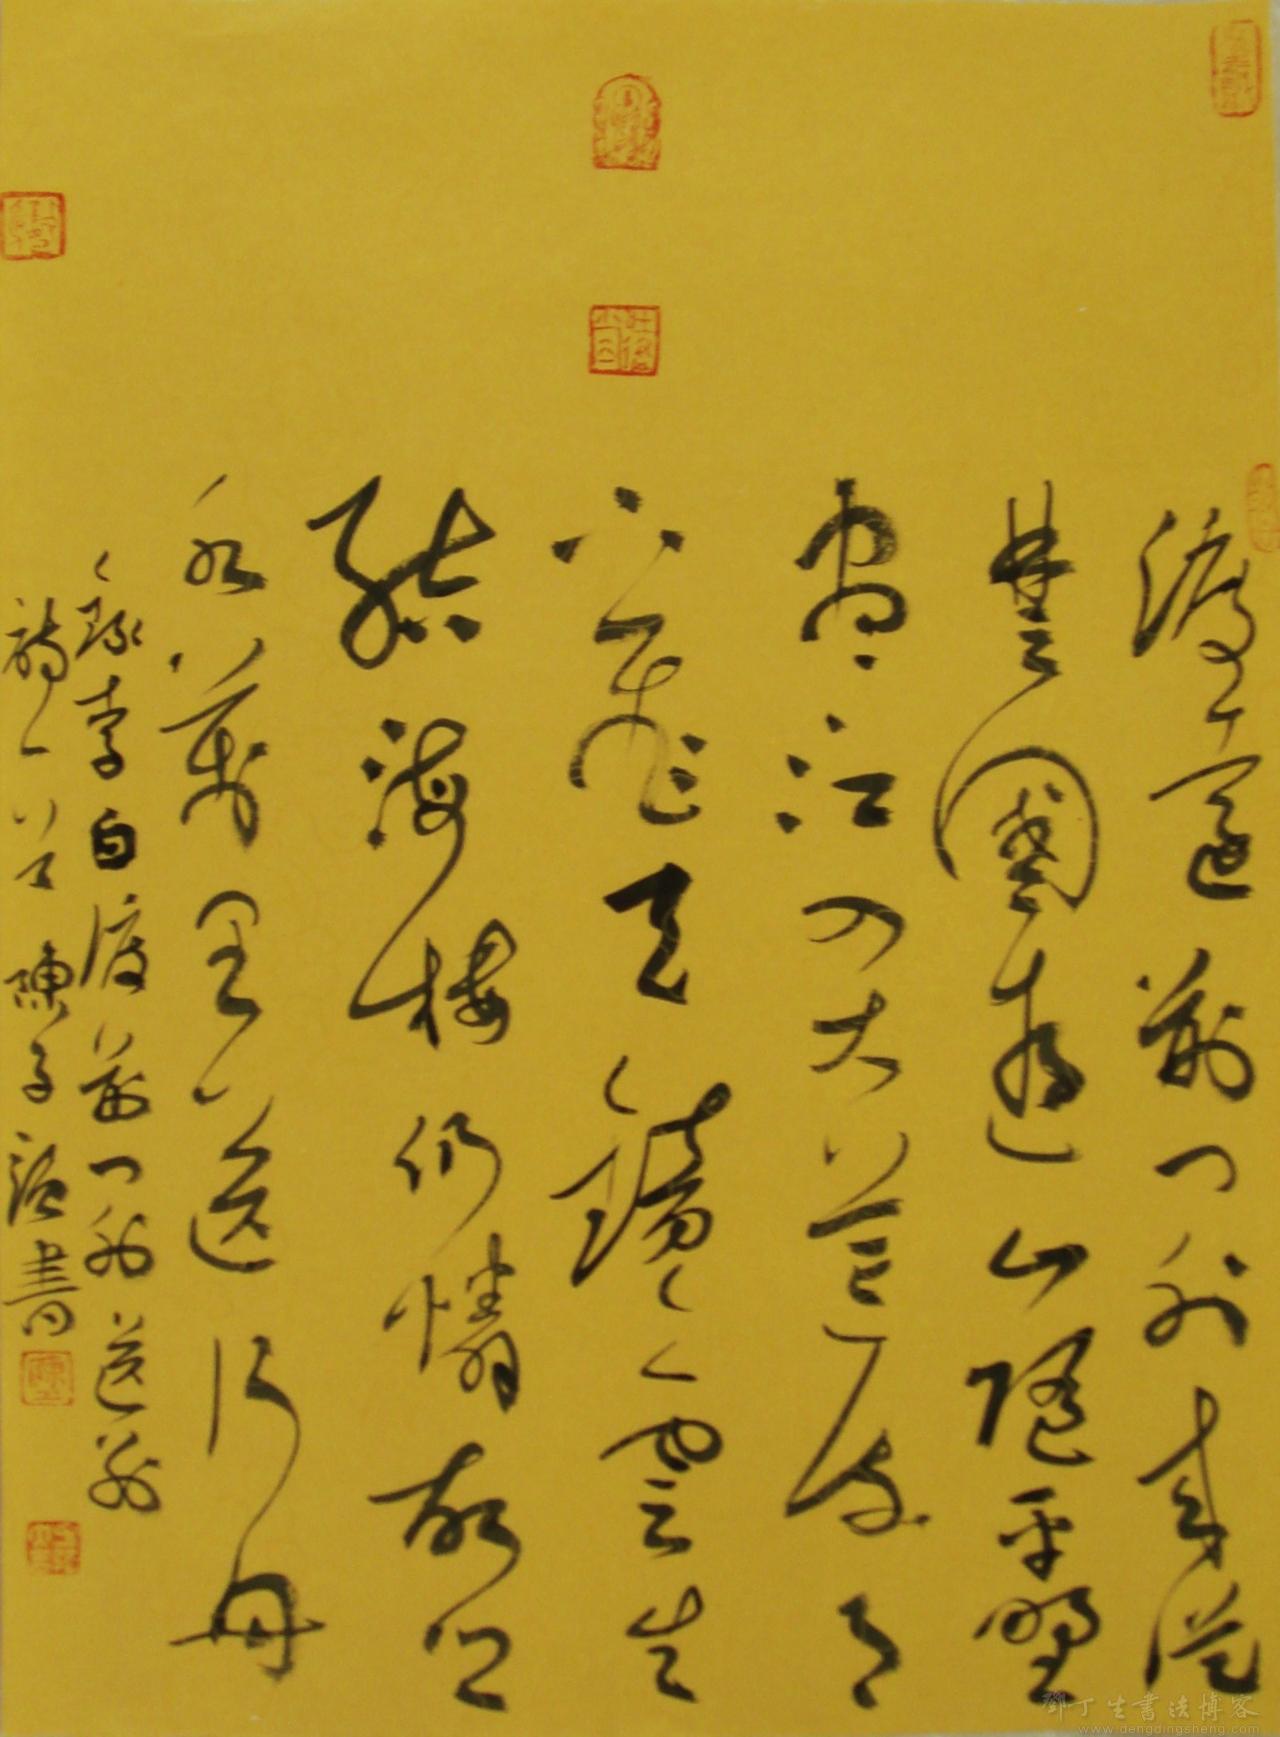 渡遠荊门外來從
楚國遊山隨平野
盡江入大荒流月
下飛天鏡雲生
結海樓仍憐故鄉
水萬里送行舟
錄李白渡荊门外送別
詩一首 陳子 書
鄧丁生書法博客
www.dengdingsheng.com